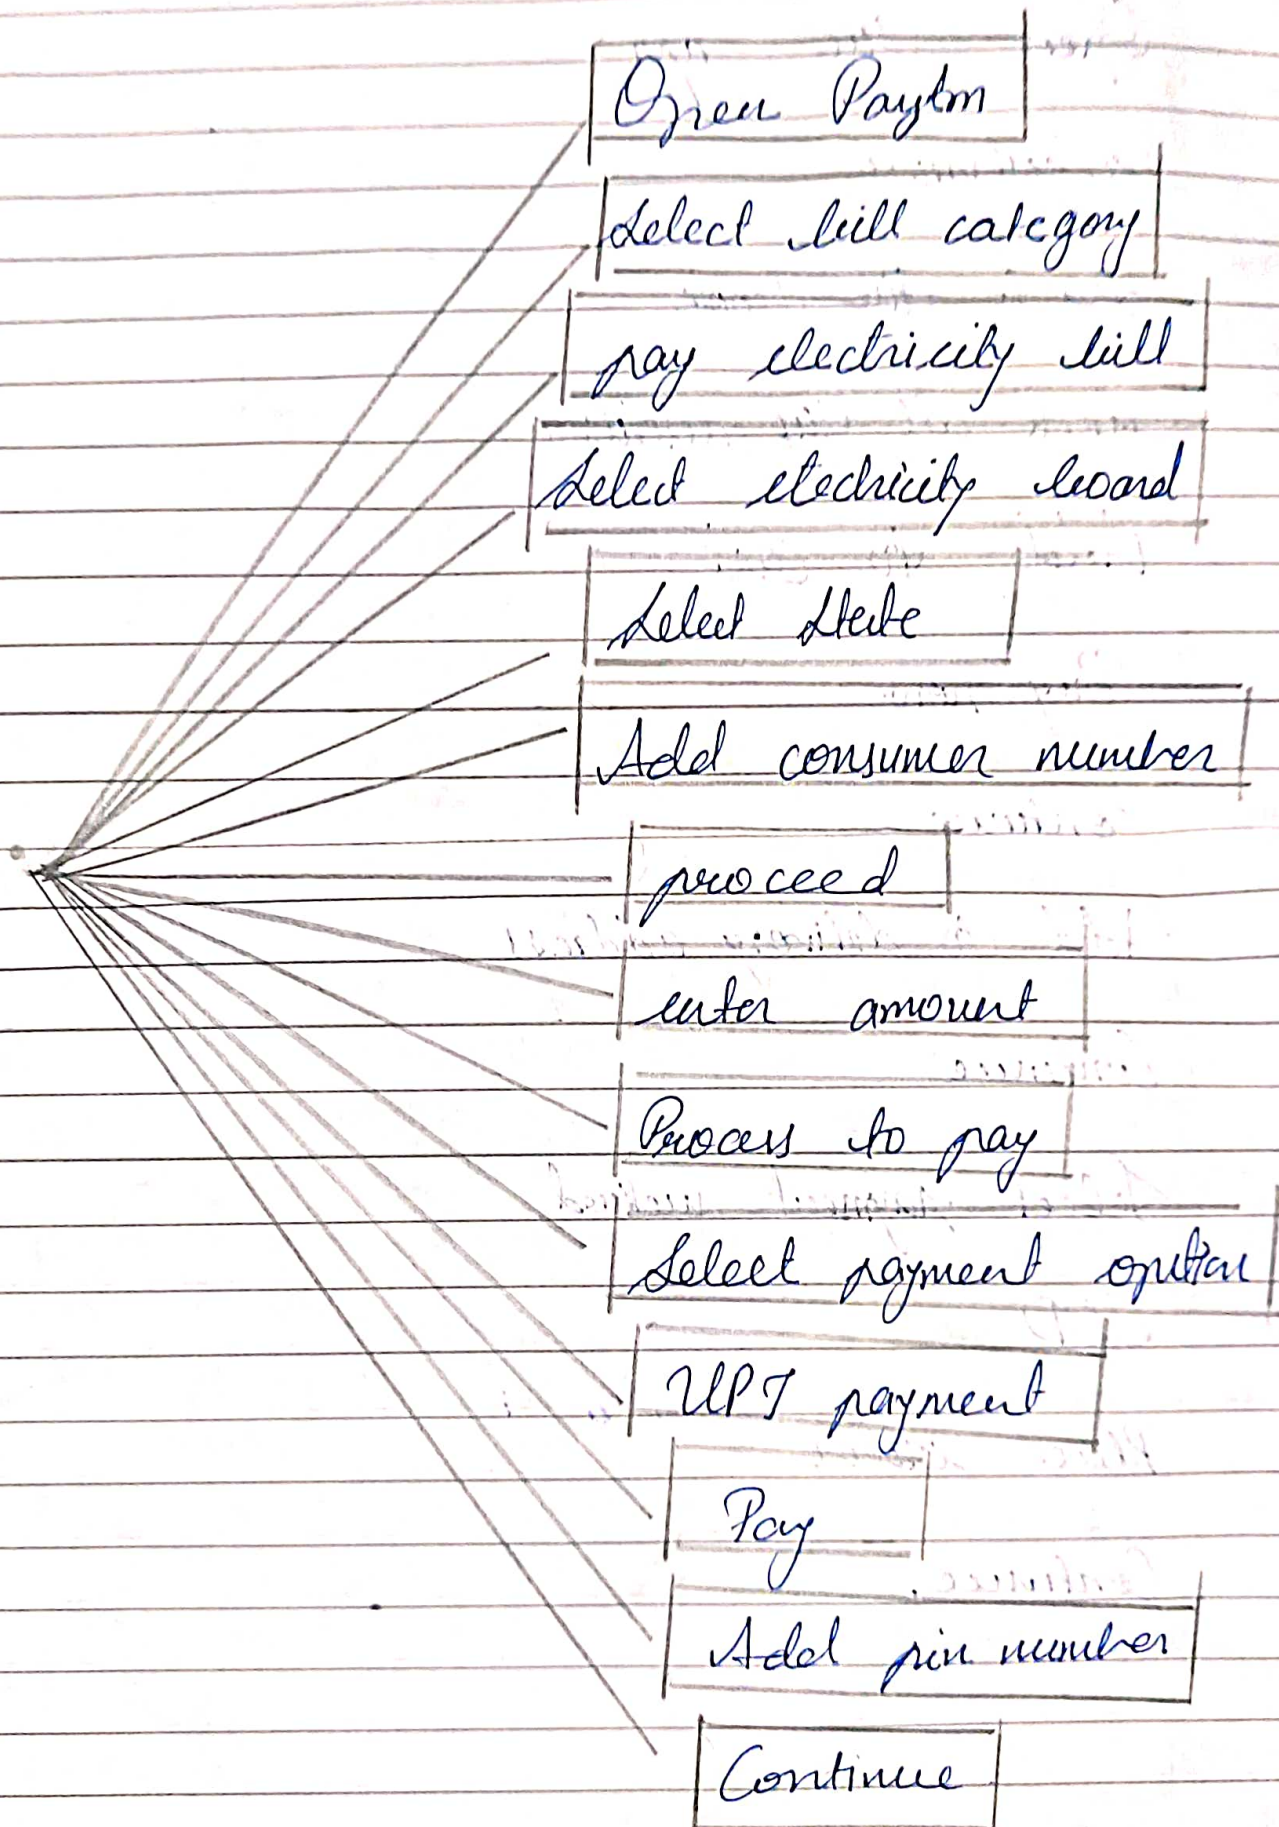 Open Paytm
Select bill category
pay electricity bill
Select electricity board
Select State
Add consumer number
proceed
enter amount
Process to pay
Select payment option
UPI payment
Pay
Add pin number
Continue